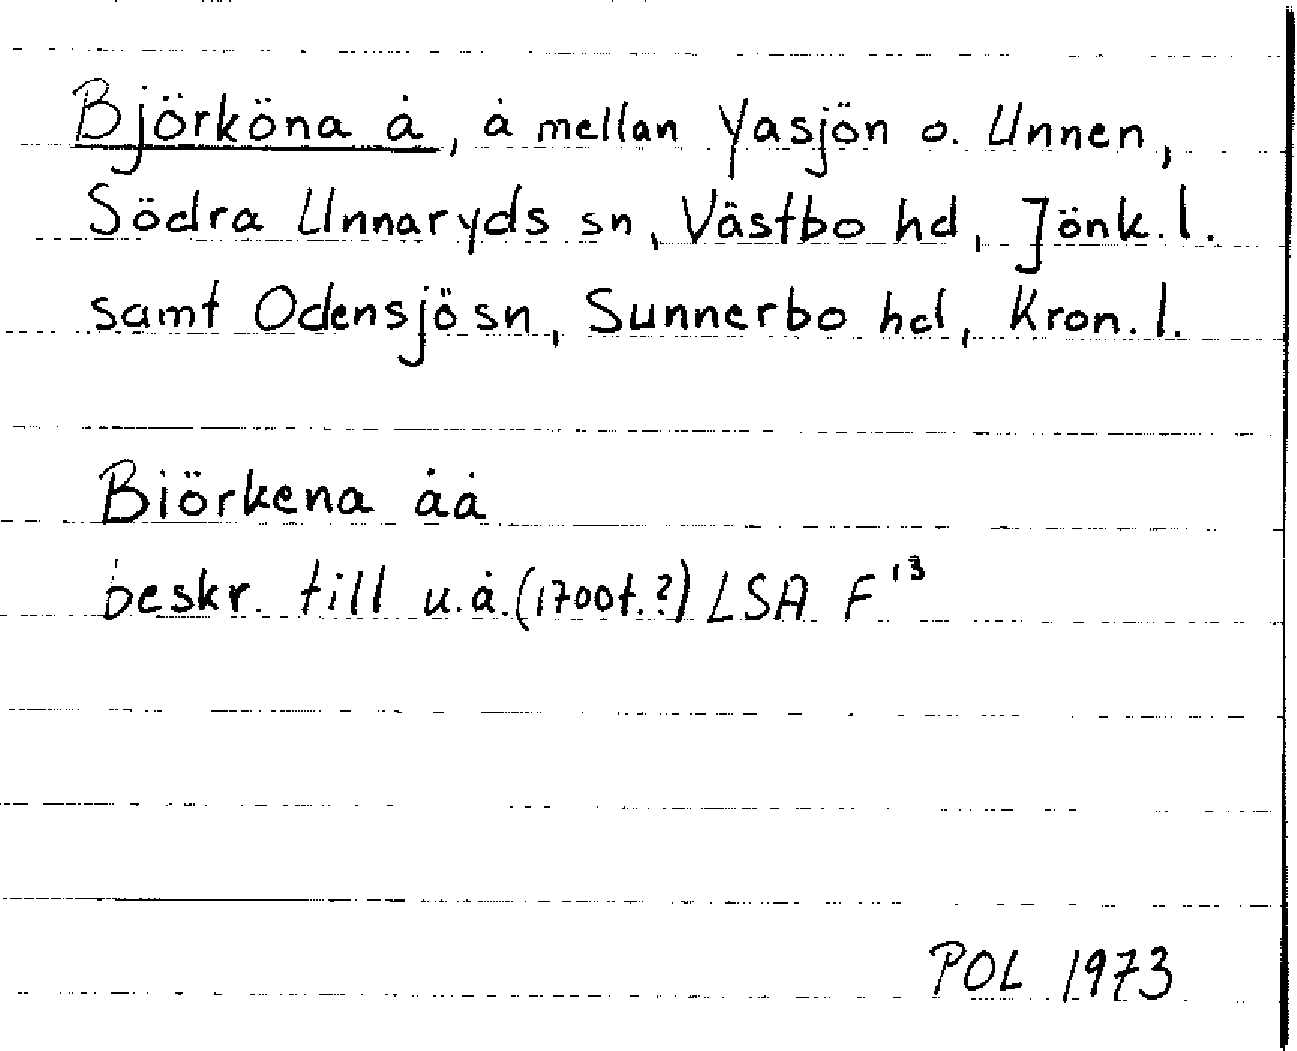 Björköna å, å mellan Yasjön o. Unnen,
Södra Unnaryds sn, Västbo hd, Jönk. l.
samt Odensjö sn, Sunnerbo hd, Kron. l.
Biörkena åå
beskr. till u.å. (1700t.?) LSA F¹³
POL 1973